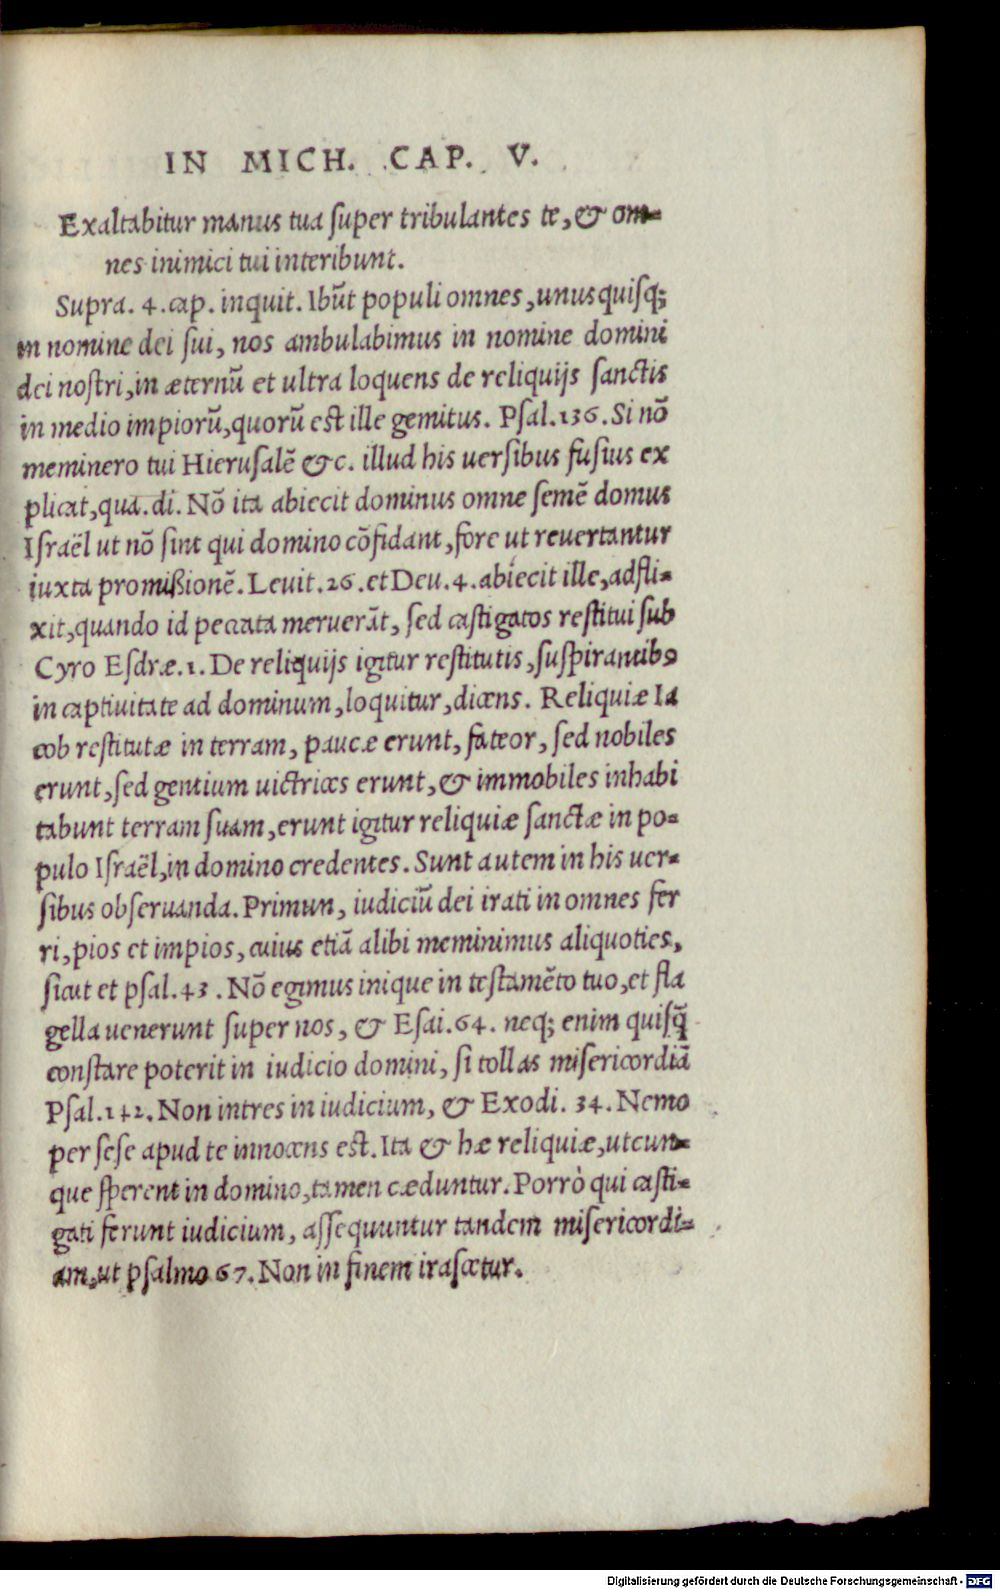 IN MICH. CAP. V.
Exaltabitur manus tua super tribulantes te, & om-
nes inimici tui interibunt.
Supra. 4. cap. inquit. Ibūt populi omnes, unusquisq;
in nomine dei sui, nos ambulabimus in nomine domini
dei nostri, in æternū et ultra loquens de reliquijs sanctis
in medio impiorū, quorū est ille gemitus. Psal. 136. Si nō
meminero tui Hierusalē &c. illud his uersibus fusius ex
plicat, qua. di. Nō ita abiecit dominus omne semē domus
Israël ut nō sint qui domino cōfidant, fore ut reuertantur
iuxta promißionē. Leuit. 26. et Deu. 4. abiecit ille, adfli-
xit, quando id peccata meruerāt, sed castigatos restitui sub
Cyro Esdræ. 1. De reliquijs igitur restitutis, suspirantibꝰ
in captiuitate ad dominum, loquitur, dicens. Reliquiæ Ia
cob restitutæ in terram, paucæ erunt, fateor, sed nobiles
erunt, sed gentium uictrices erunt, & immobiles inhabi
tabunt terram suam, erunt igitur reliquiæ sanctæ in po-
pulo Israël, in domino credentes. Sunt autem in his uer-
sibus obseruanda. Primun, iudiciū dei irati in omnes fer
ri, pios et impios, cuius etiā alibi meminimus aliquoties,
sicut et psal. 43. Nō egimus inique in testamēto tuo, et fla
gella uenerunt super nos, & Esai. 64. neq; enim quisq̄
constare poterit in iudicio domini, si tollas misericordiā
Psal. 142. Non intres in iudicium, & Exodi. 34. Nemo
per sese apud te innocens est. Ita & hæ reliquiæ, utcun-
que sperent in domino, tamen cæduntur. Porrò qui casti-
gati ferunt iudicium, assequuntur tandem misericordi-
am, ut psalmo 67. Non in finem irascetur.
Digitalisierung gefördert durch die Deutsche Forschungsgemeinschaft - DFG